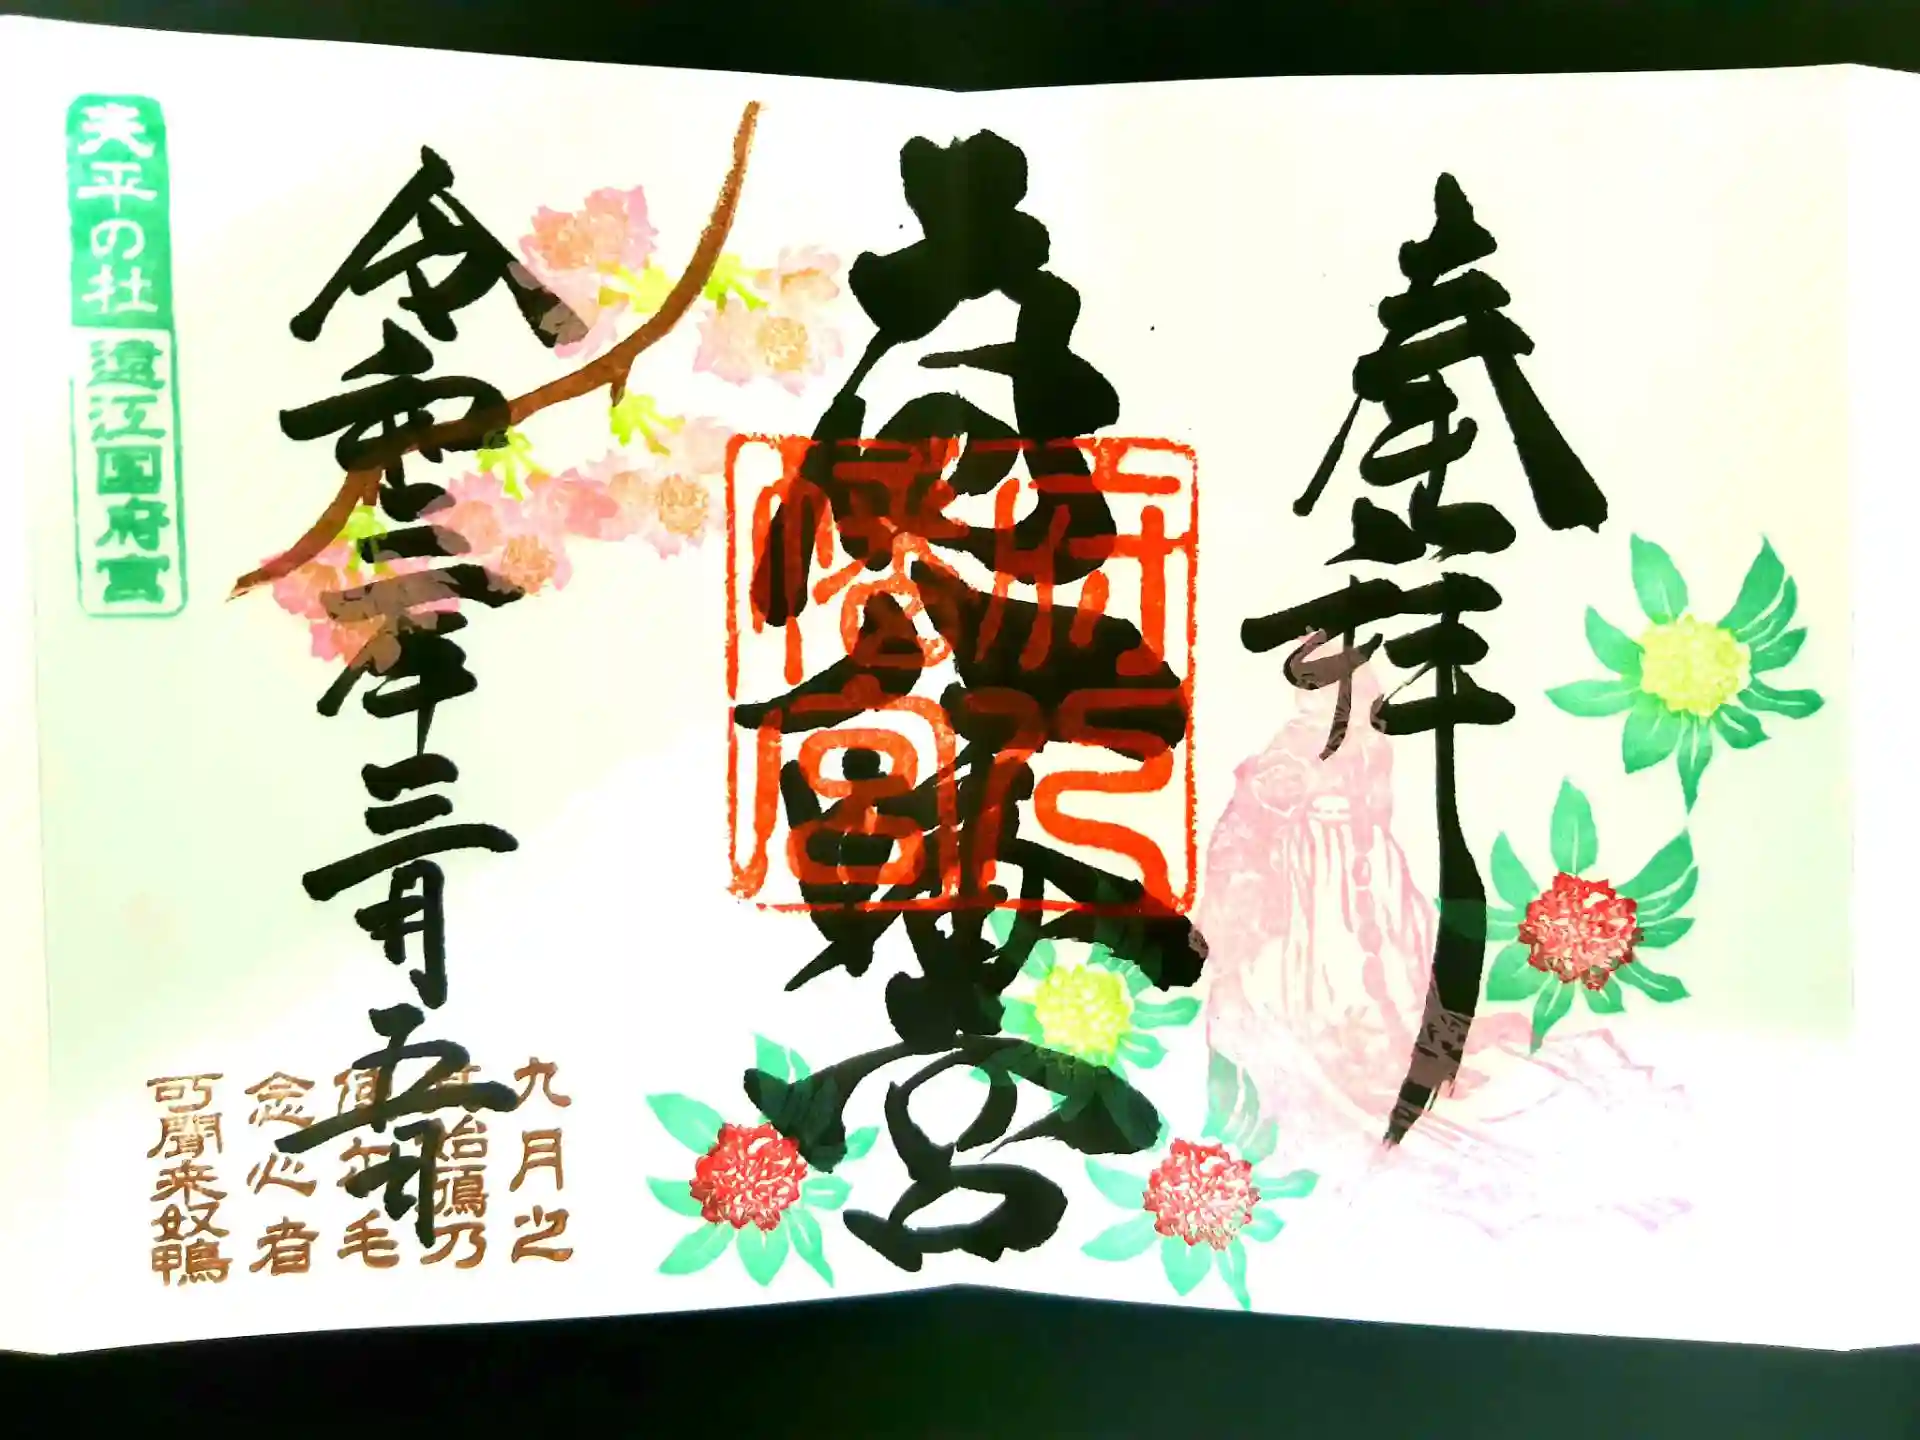 奉拝
府八幡宮
府八幡宮
令和二年三月五日
九月之
其始鴈乃
使尓毛
念心者
所聞来奴鴨
天平の杜 遠江国府宮